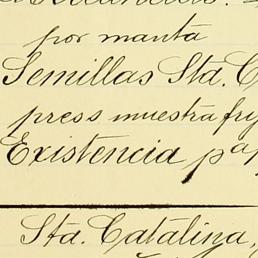 por manta
Semillas Std. C
press muestra
Existencia pa
Std. Catalina,